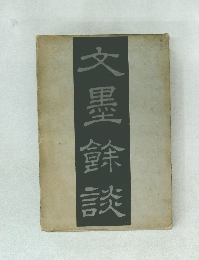 文墨餘談